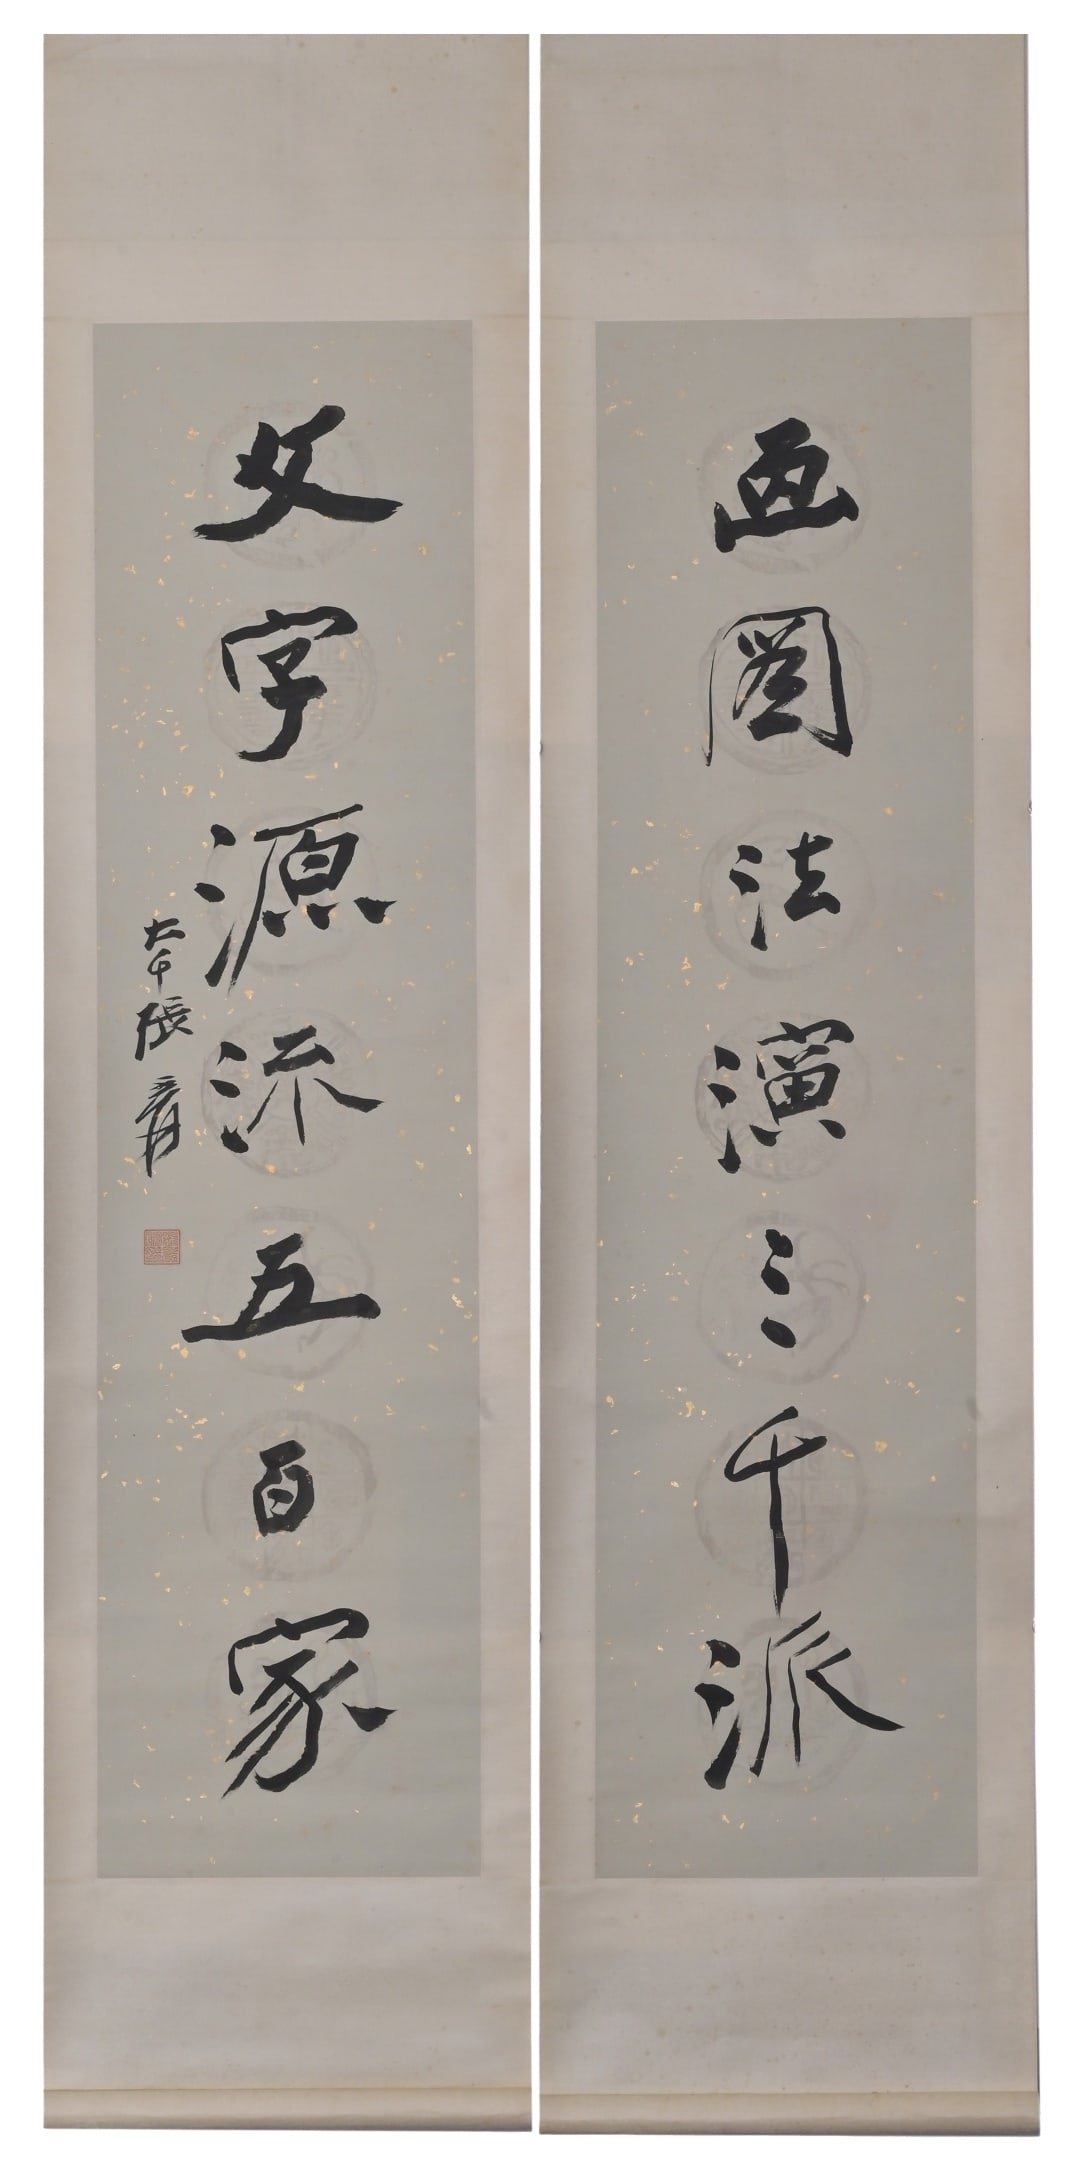 画图法演三千派
文字源流五百家
大千張爰